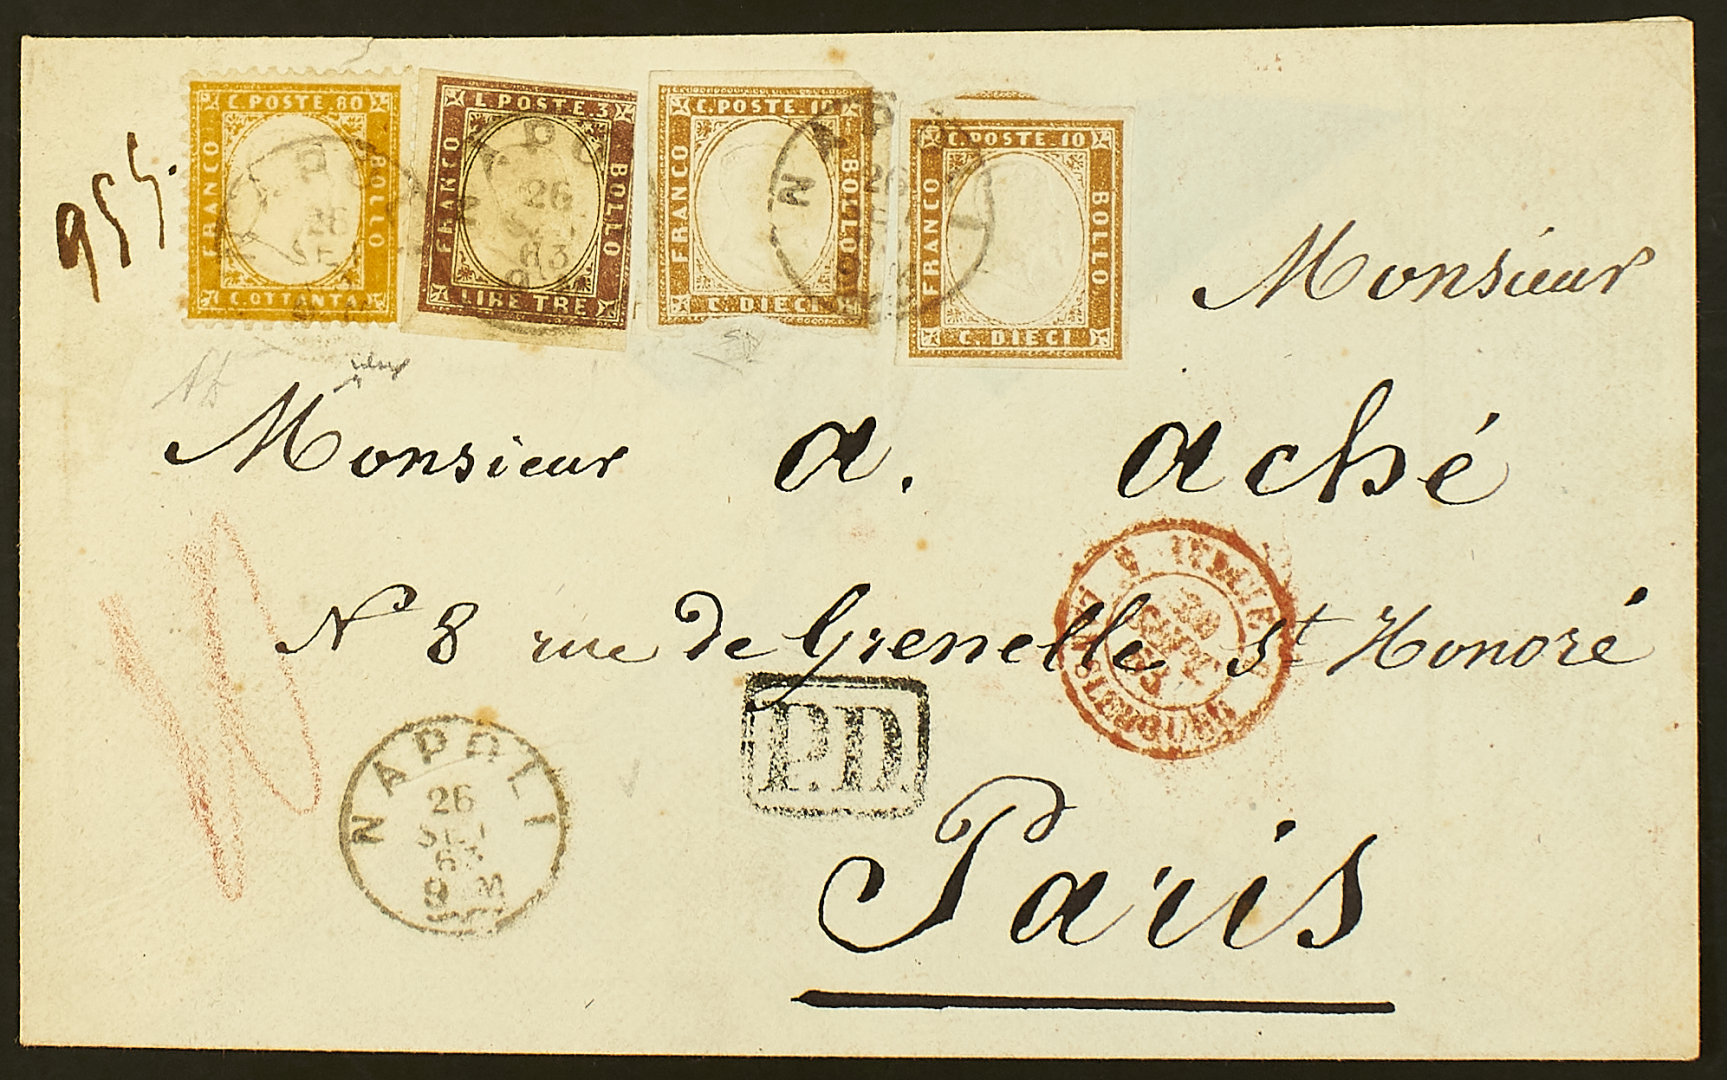 C. POSTE. 80
FRANCO
BOLLO
C. OTTANTA
L. POSTE. 3
FRANCO
BOLLO
LIRE TRE
C. POSTE. 10
FRANCO
BOLLO
C. DIECI
C. POSTE. 10
FRANCO
BOLLO
C. DIECI
NAPOLI
26
SET
63
955.
Monsieur
Monsieur a. aché
N° 8 rue de Grenelle St. Honoré
P.D.
Paris
NAPOLI
26
SET
63
9 M